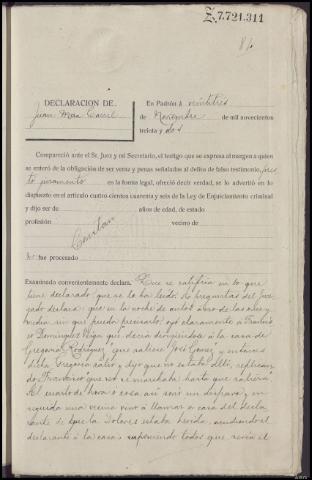 Z.7.721.311
DECLARACION DE
Juan Mora
En Padrón á veintitrés
de Noviembre de mil novecientos
treinta y dos
Compareció ante el Sr. Juez y mi Secretario, el testigo que se expresa al margen a quien
se enteró de la obligación de ser veraz y penas señaladas al delito de falso testimonio, pres
tó juramento en la forma legal, ofreció decir verdad, se lo advertió en lo
dispuesto en el artículo cuatro cientos cuarenta y seis de la Ley de Enjuiciamiento criminal
y dijo ser de años de edad, de estado
profesión vecino de
Constan
no fue procesado
Examinado convenientemente declara: Que se ratifica en lo que
tiene declarado que se le ha leído. A preguntas del Juz
gado declara: que en la noche de autos a eso de las once y
media sin que pueda precisarlo, oyó claramente a Francis
co Dominguez Veiga que decía dirigiéndose a la casa de
Gregoria Rodriguez "que saliese José Gomez" y entonces
dicha Gregoria salió y dijo que no estaba allí, replican
do Francisco "que no se marchaba hasta que saliera"
Al cuarto de hora o cosa así sonó un disparo y en
seguida una vecina vino a llamar a casa del decla
rante de que la Dolores estaba herida, acudiendo el
declarante a la casa, suponiendo todos que sería el